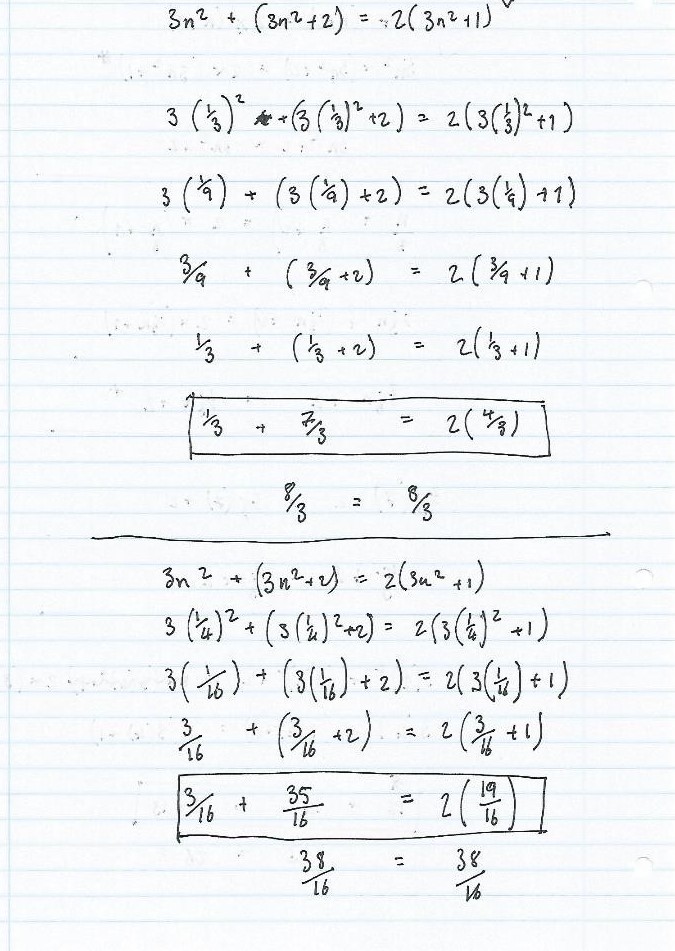 3n² + (3n²+2) = 2(3n²+1)
3 (1/3)² + (3 (1/3)² +2) = 2(3(1/3)²+1)
3 (1/9) + (3 (1/9) +2) = 2(3(1/9) +1)
3/9 + (3/9 +2) = 2 (3/9 +1)
1/3 + (1/3 +2) = 2(1/3 +1)
1/3 + 7/3 = 2(4/3)
8/3 = 8/3
3n² + (3n²+2) = 2(3n² +1)
3 (1/4)² + (3(1/4)²+2) = 2(3(1/4)² +1)
3(1/16) + (3(1/16) +2) = 2(3(1/16) +1)
3/16 + (3/16 +2) = 2(3/16 +1)
3/16 + 35/16 = 2(19/16)
38/16 = 38/16